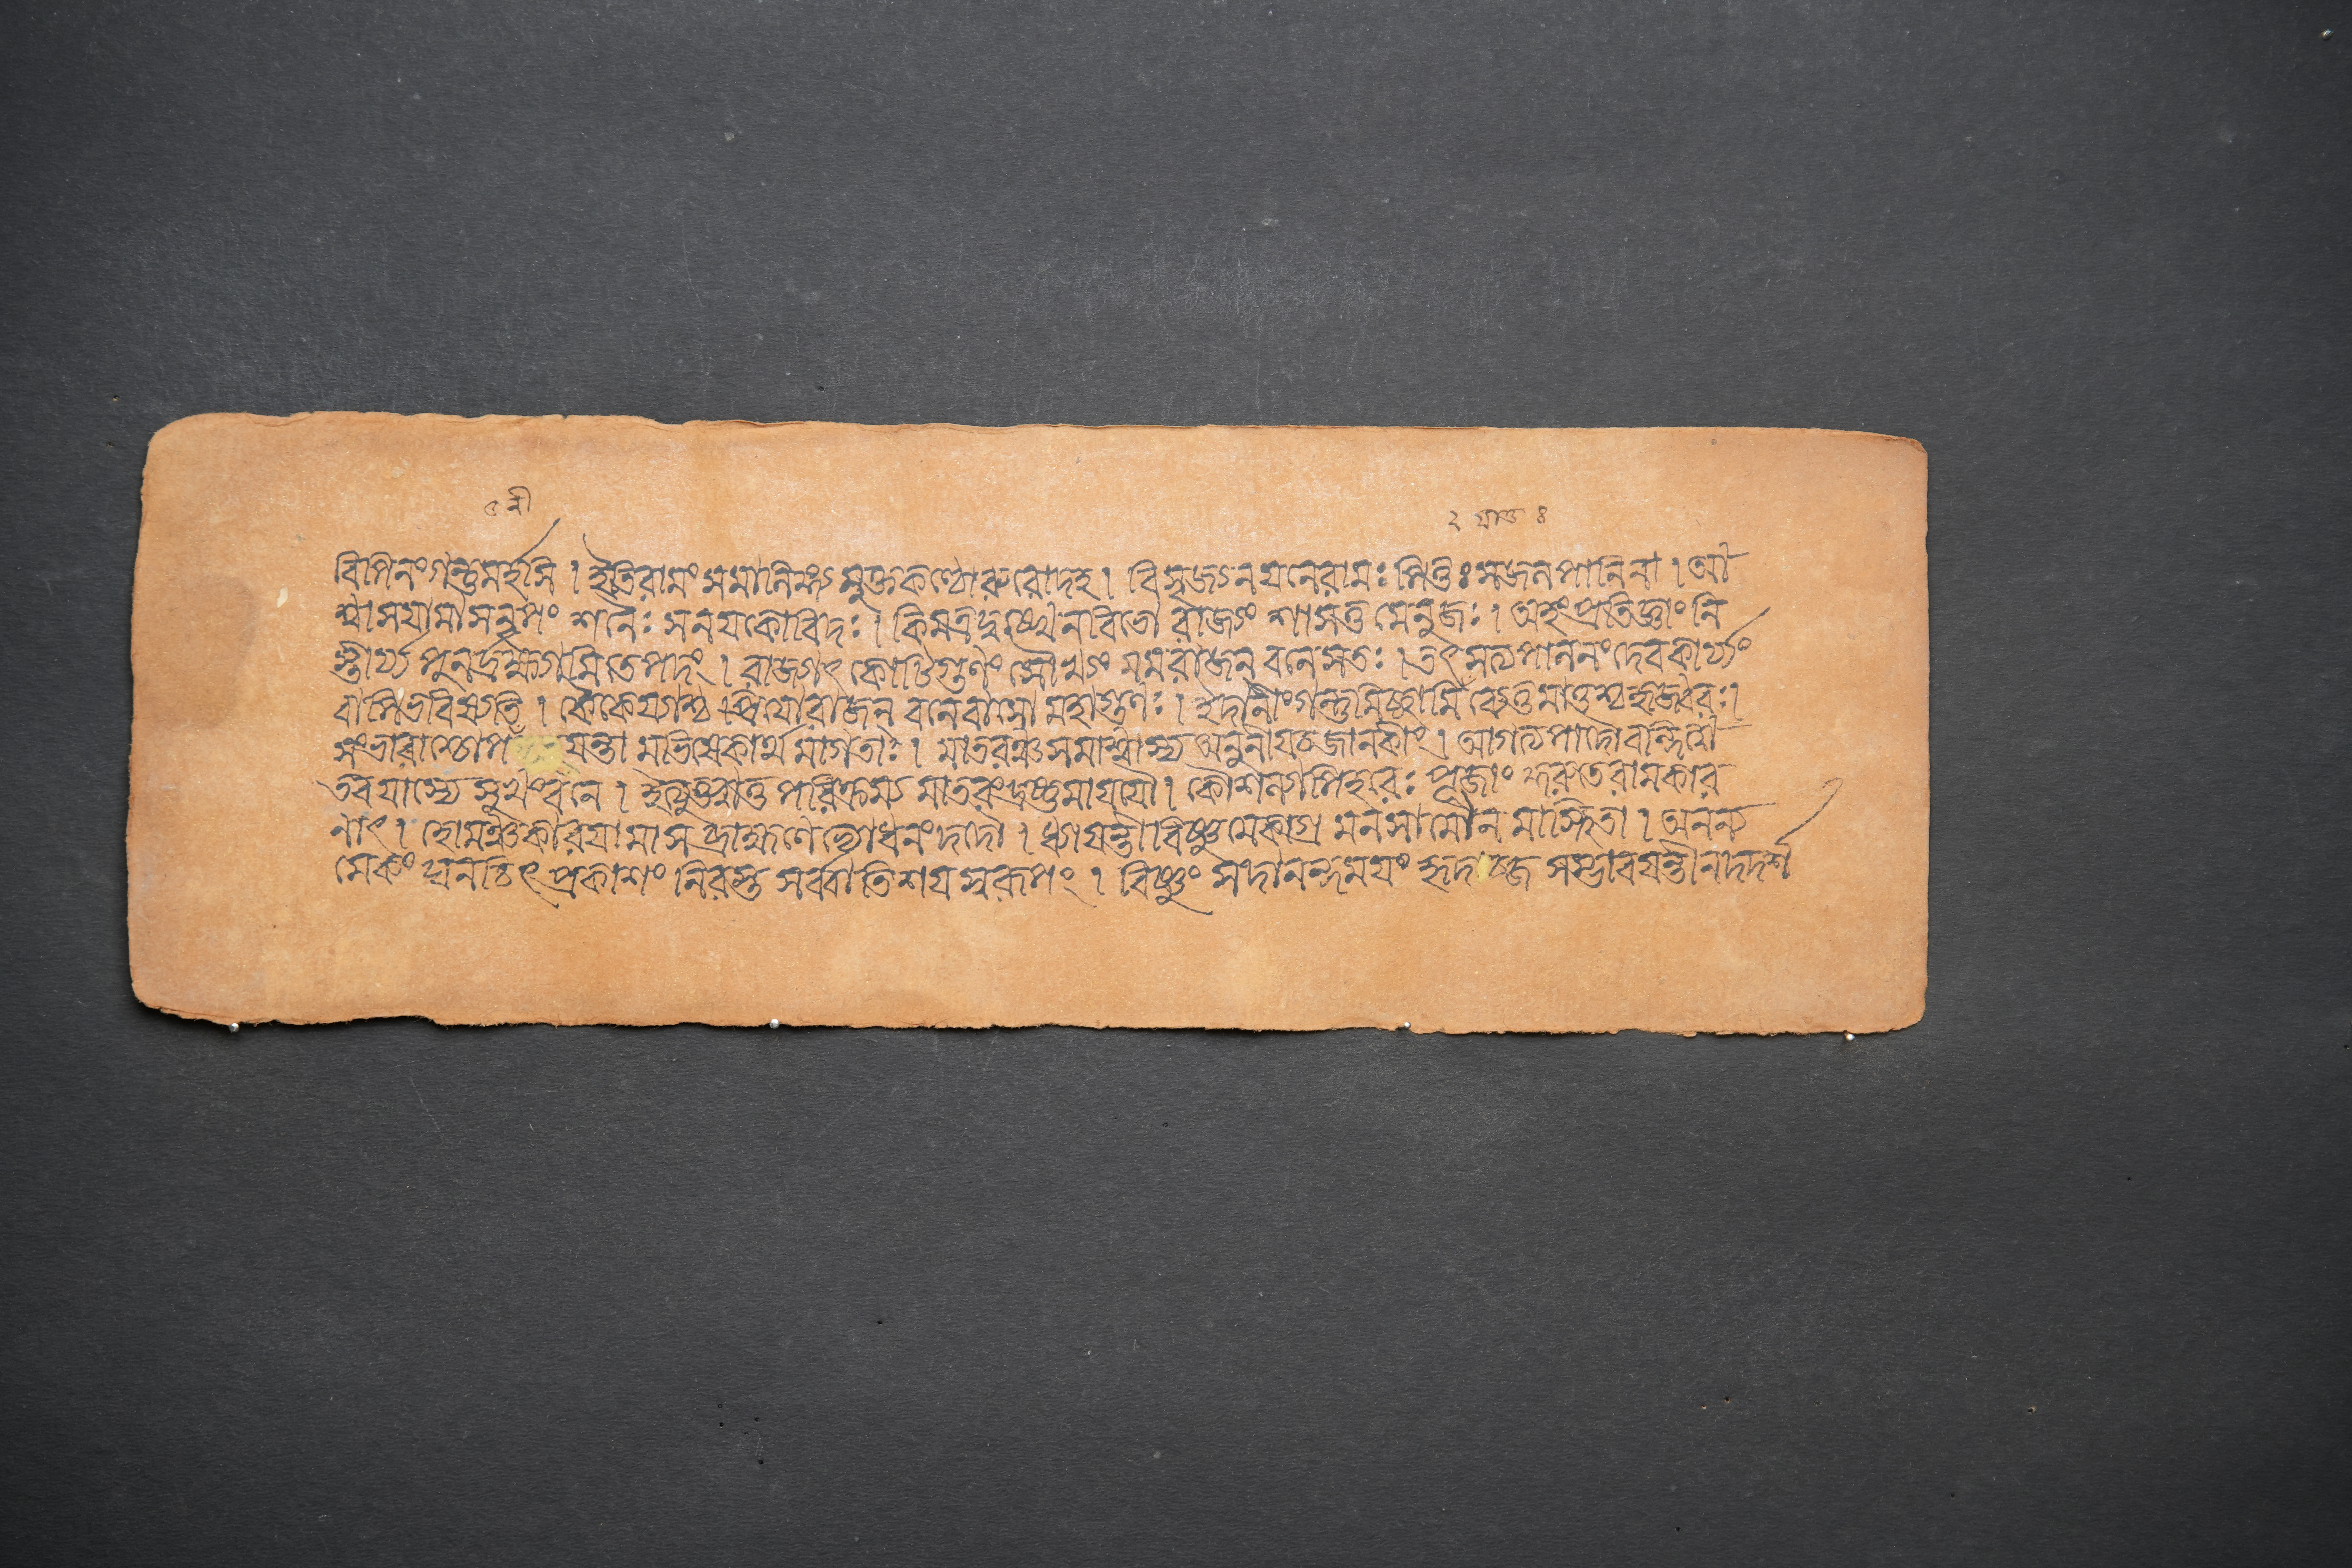 ৫ শ্রী ২ আও ৪
বিপিনং গন্তুমর্হসি । ইতিরামং সমালিঙ্গ্য মুক্তকণ্ঠোরুরোদহ । বিমৃজ্য নয়নেরামঃ পিতুঃ সজলপানিনা । আ
শ্বাসয়ামাসনৃপং শনৈঃ সনয়কোবিদঃ । কিমত্রদুঃখেনবিভো রাজ্যং শাসতুমেনুজঃ । অহংপ্রতিজ্ঞাং নি
স্তীর্য্য পুনর্দ্রক্ষ্যামিতেপদং । রাজ্যাৎ কোটিগুণং সৌখ্যং মমরাজন্ বনেসতঃ । ত্বৎসত্যপালনং দেবকার্য্যং
বাপিভবিষ্যতি । কৈকেয়্যাশ্চ প্রিয়োরাজন্ বনেবাসো মহাগুণঃ । ইদানীং গন্তুমিচ্ছামি ব্যেতুমাতুশ্চহৃজ্জ্বরঃ ।
সংভারাশ্চোপ য়ন্তা মভিষেকার্থমাগতাঃ । মাতরঞ্চসমাশ্বাস্য অনুনীয়চজানকীং । আগত্যপাদৌবন্দিত্বা
তবয়াস্যে সুখংবনে । ইত্যুক্ত্বাতু পরিক্রম্য মাতরংদ্রষ্টুমায়য়ৌ । কৌশল্যাপিহরেঃ পূজাং কুরুতেরামকার
ণাৎ । হোমঞ্চকারয়ামাস ব্রাহ্মণেভ্যোধনংদদৌ । ধ্যায়ন্তীবিষ্ণুমেকাগ্র মনসামৌনমাস্থিতা । অনন্ত
মেকং ঘনচিৎপ্রকাশং নিরস্ত সর্ব্বাতিশয়স্বরূপং । বিষ্ণুং সদানন্দময়ং হৃদব্জে সম্ভাবয়ন্তীনদদর্শ